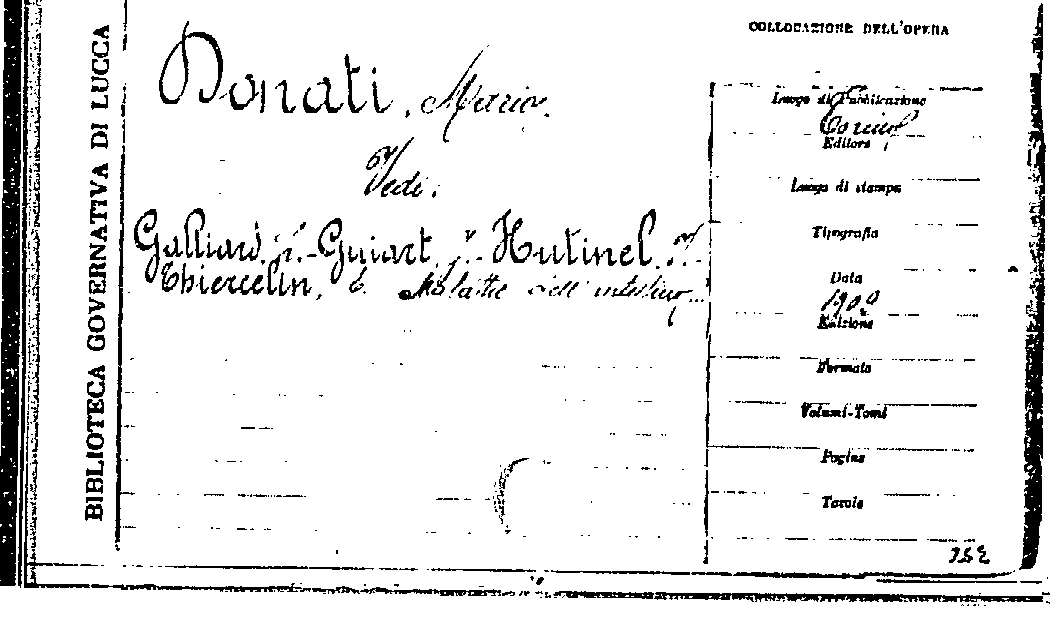 BIBLIOTECA GOVERNATIVA DI LUCCA
Donati, Mario.
Vedi.
Galliard, L. - Guiart, J. - Hutinel, V. -
Thiercelin, E. Malattie dell'intestino...
COLLOCAZIONE DELL'OPERA
Luogo di Pubblicazione
Torino
Editore
Luogo di stampa
Tipografia
Data
1909
Edizione
Formato
Volumi-Tomi
Pagine
Tavole